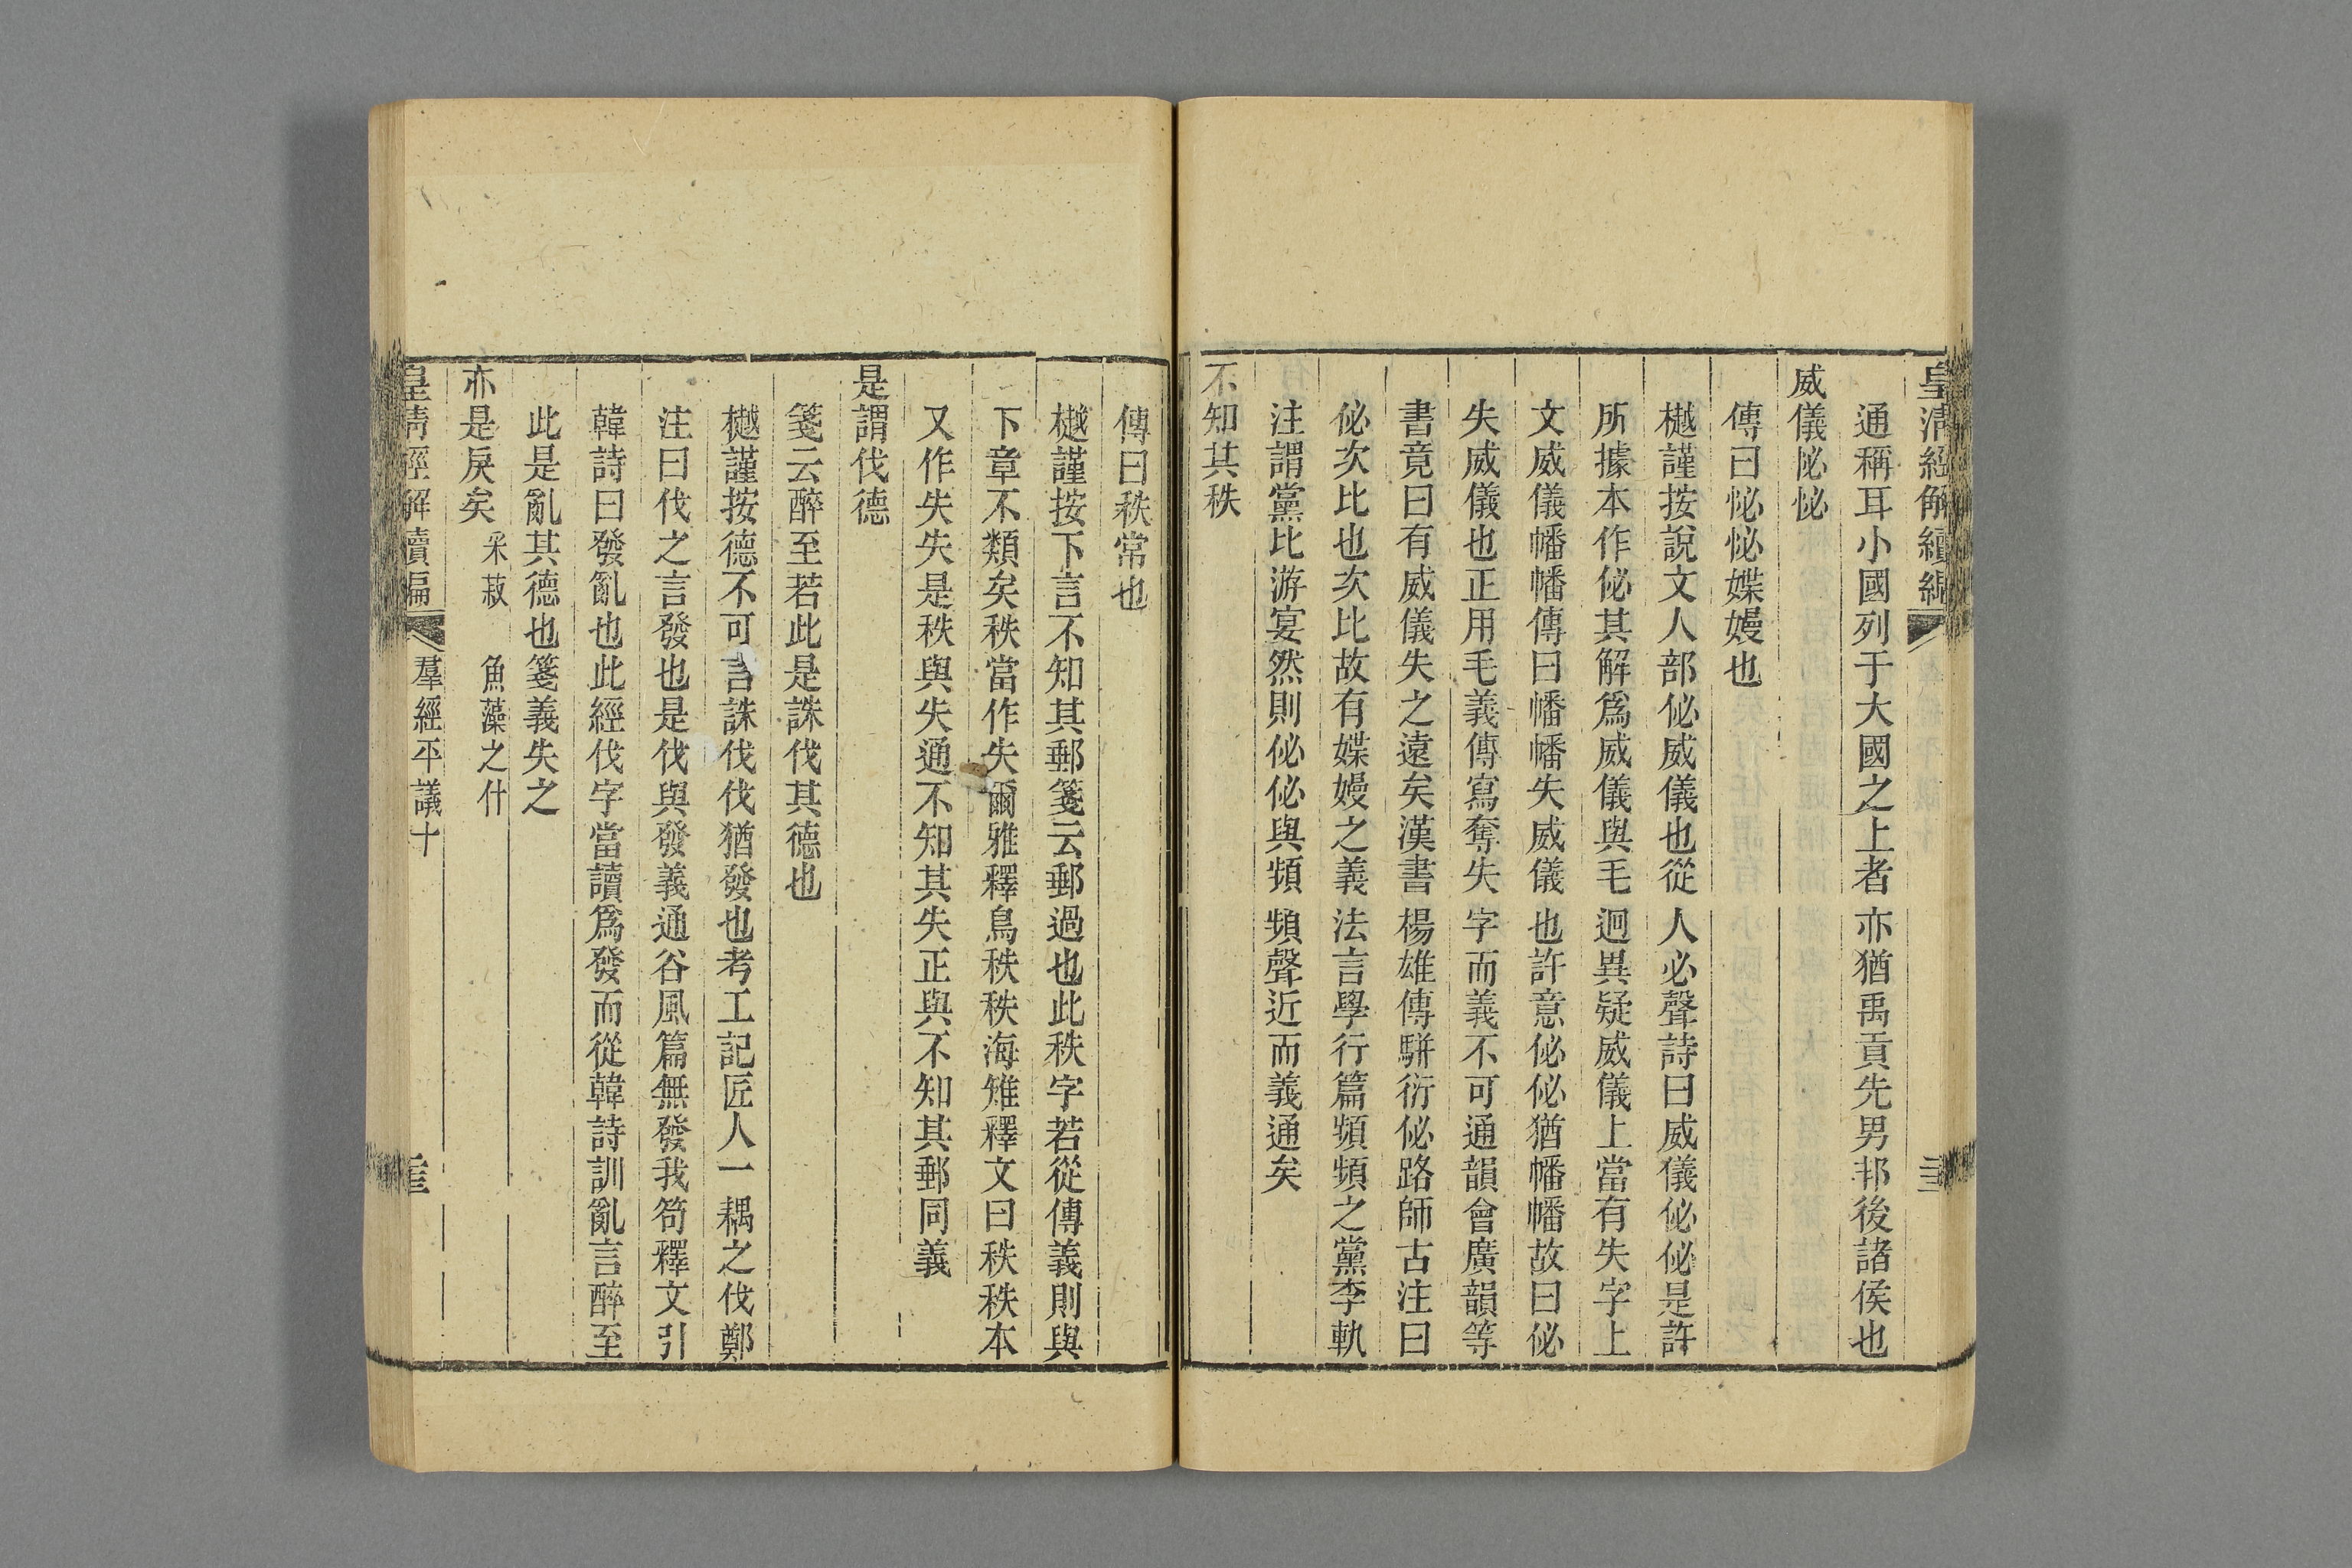 皇清經解續編
通稱耳小國列于大國之上者亦猶禹貢先男邦後諸侯也
威儀怭怭
傳曰怭怭媟嫚也
樾謹按說文人部佖威儀也從人必聲詩曰威儀佖佖是許
所據本作佖其解爲威儀與毛迥異疑威儀上當有失字上
文威儀幡幡傳曰幡幡失威儀也許意佖佖猶幡幡故曰佖
失威儀也正用毛義傳寫奪失字而義不可通韻會廣韻等
書竟曰有威儀失之遠矣漢書楊雄傳駢衍佖路師古注曰
佖次比也次比故有媟嫚之義法言學行篇頻頻之黨李軌
注謂黨比游宴然則佖佖與頻頻聲近而義通矣
不知其秩
傳曰秩常也
樾謹按下言不知其郵箋云郵過也此秩字若從傳義則與
下章不類矣秩當作失爾雅釋鳥秩秩海雉釋文曰秩秩本
又作失失是秩與失通不知其失正與不知其郵同義
是謂伐德
箋云醉至若此是誅伐其德也
樾謹按德不可言誅伐伐猶發也考工記匠人一耦之伐鄭
注曰伐之言發也是伐與發義通谷風篇無發我笱釋文引
韓詩曰發亂也此經伐字當讀爲發而從韓詩訓亂言醉至
此是亂其德也箋義失之
亦是戾矣 采菽 魚藻之什
皇清經解續編 羣經平議十